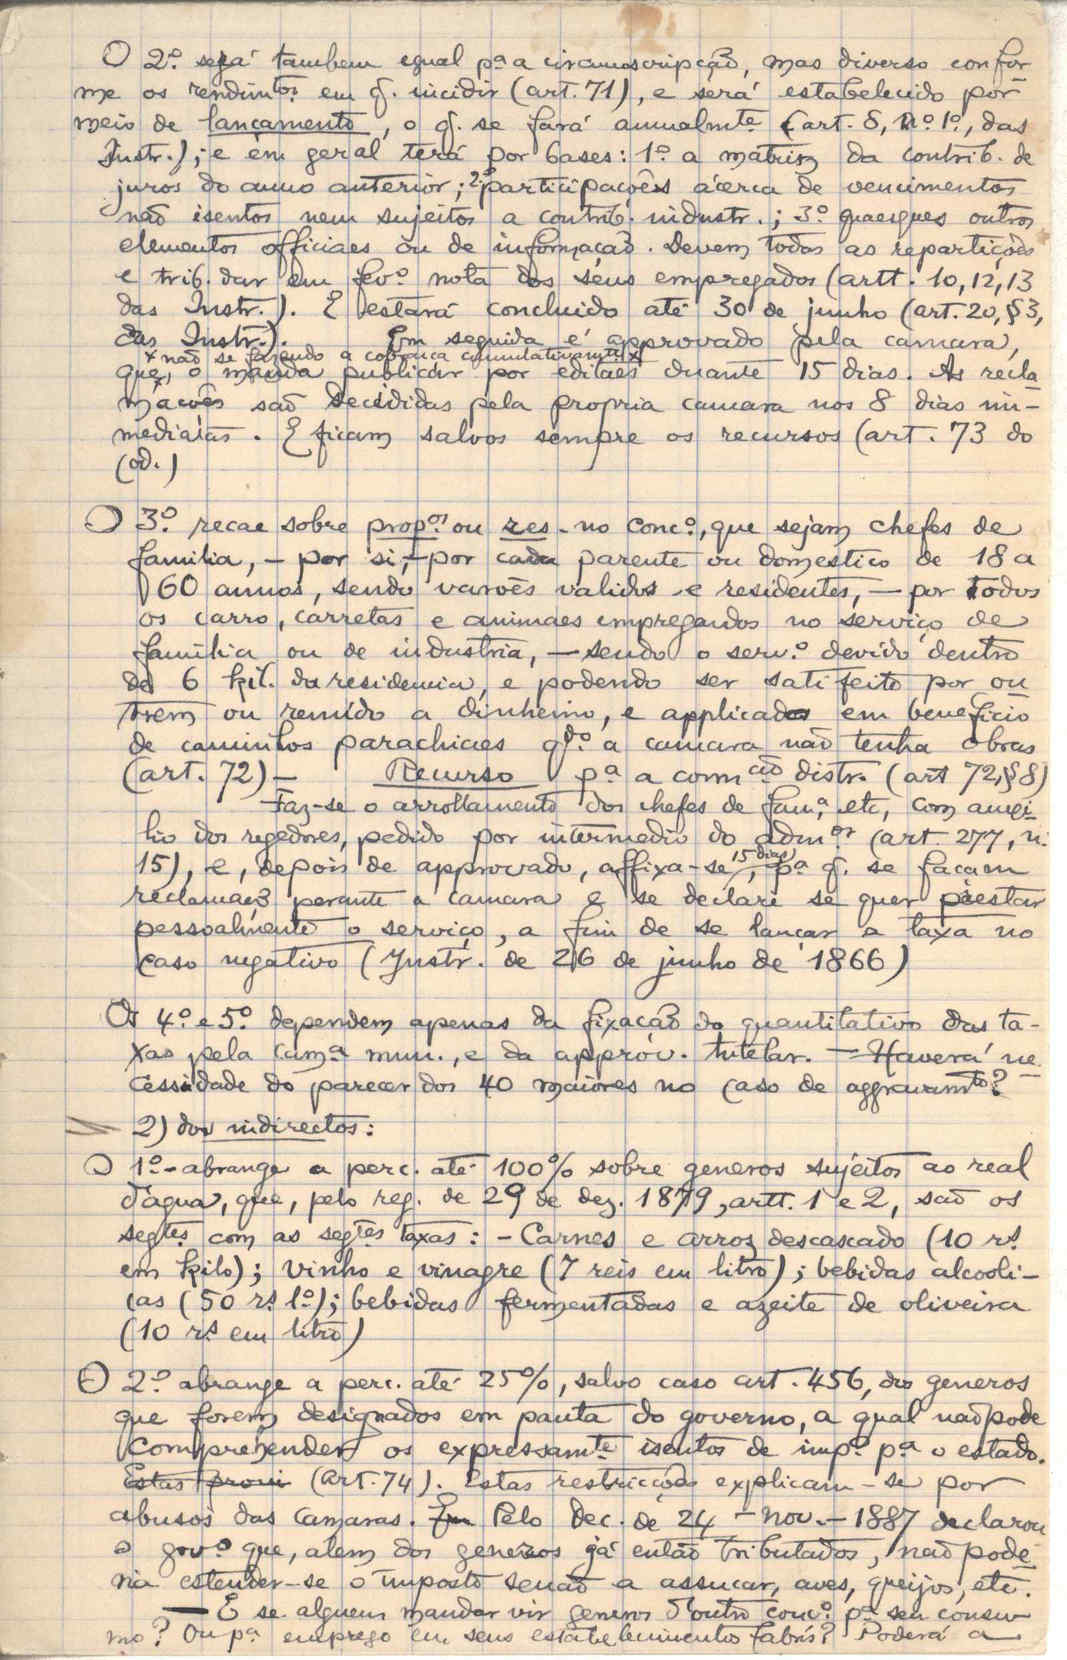 O 2.º será tambem egual p.ª a circumscripção, mas diverso confor-
me os rendimtos em q. incidir (art. 71), e será estabelecido por
meio de lançamento, o q. se fará annualmte (art. 8, n.º 1.º, das
Instr.); e em geral terá por bases: 1.º a matriz da contrib. de
juros do anno anterior; 2.º participações ácerca de vencimentos
não isentos nem sujeitos a contrib. industr.; 3.º quaesques outros
elementos officiaes ou de informação. Devem todas as repartições
e trib. dar em fev.º nota dos seus empregados (artt. 10, 12, 13
das Instr.). E estará concluido até 30 de junho (art. 20, §3,
das Instr.). Em seguida é approvado pela camara,
x não se fazendo a cobrança cumulativamte x
que, o manda publicar por editaes durante 15 dias. As recla-
mações são decididas pela propria camara nos 8 dias im-
mediatas. E ficam salvos sempre os recursos (art. 73 do
cod.)
O 3.º recae sobre prop.os ou res. no conc.º, que sejam chefes de
familia, – por si, – por cada parente ou domestico de 18 a
60 annos, sendo varões validos e residentes, – por todos
os carro, carretas e animaes empregados no serviço de
familia ou de industria, – sendo o serv.º devido dentro
de 6 kil. da residencia, e podendo ser satisfeito por ou-
trem ou remido a dinheiro, e applicado em beneficio
de caminhos parachiaes qdo. a camara não tenha obras
(art. 72) – Recurso p.ª a commção distr. (art 72, §8)
Faz-se o arrollamento dos chefes de fam.ª, etc, com auxi-
lio dos regedores, pedido por intermedio do adm.or (art. 277, n.
15), e, depois de approvado, affixa-se 15 dias, p.ª q. se façam
reclamaes perante a camara e se declare se quer prestar
pessoalmente o serviço, a fim de se lançar a taxa no
caso negativo (Instr. de 26 de junho de 1866)
Os 4.º e 5.º dependem apenas da fixação do quantitativo das ta-
xas pela cam.ª mun., e da approv. tutelar. – Haverá ne-
cessidade do parecer dos 40 maiores no caso de aggravamto?
2) dos indirectos:
O 1.º – abrange a perc. até 100% sobre generos sujeitos ao real
d'agua, que, pelo reg. de 29 de dez. 1879, artt. 1 e 2, são os
segtes com as segtes taxas: – Carnes e arroz descascado (10 rs.
em kilo); vinho e vinagre (7 reis em litro); bebidas alcooli-
cas (50 rs. l.º); bebidas fermentadas e azeite de oliveira
(10 rs em litro)
O 2.º abrange a perc. até 25%, salvo caso art. 456, dos generos
que forem designados em pauta do governo, a qual não pode
comprehender os expressamte isentos de imp.º p.ª o estado.
Estas provi (art. 74). Estas restricções explicam-se por
abusos das camaras. Em Pelo dec. de 24 – nov. – 1887 declarou
o gov.º que, alem dos generos já então tributados, não pode-
ria estender-se o imposto senão a assucar, aves, queijos, etc.
– E se alguem mandar vir generos d'outro conc.º p.ª seu consu-
mo? Ou p.ª emprego em seus estabelecimentos fabris? Poderá a